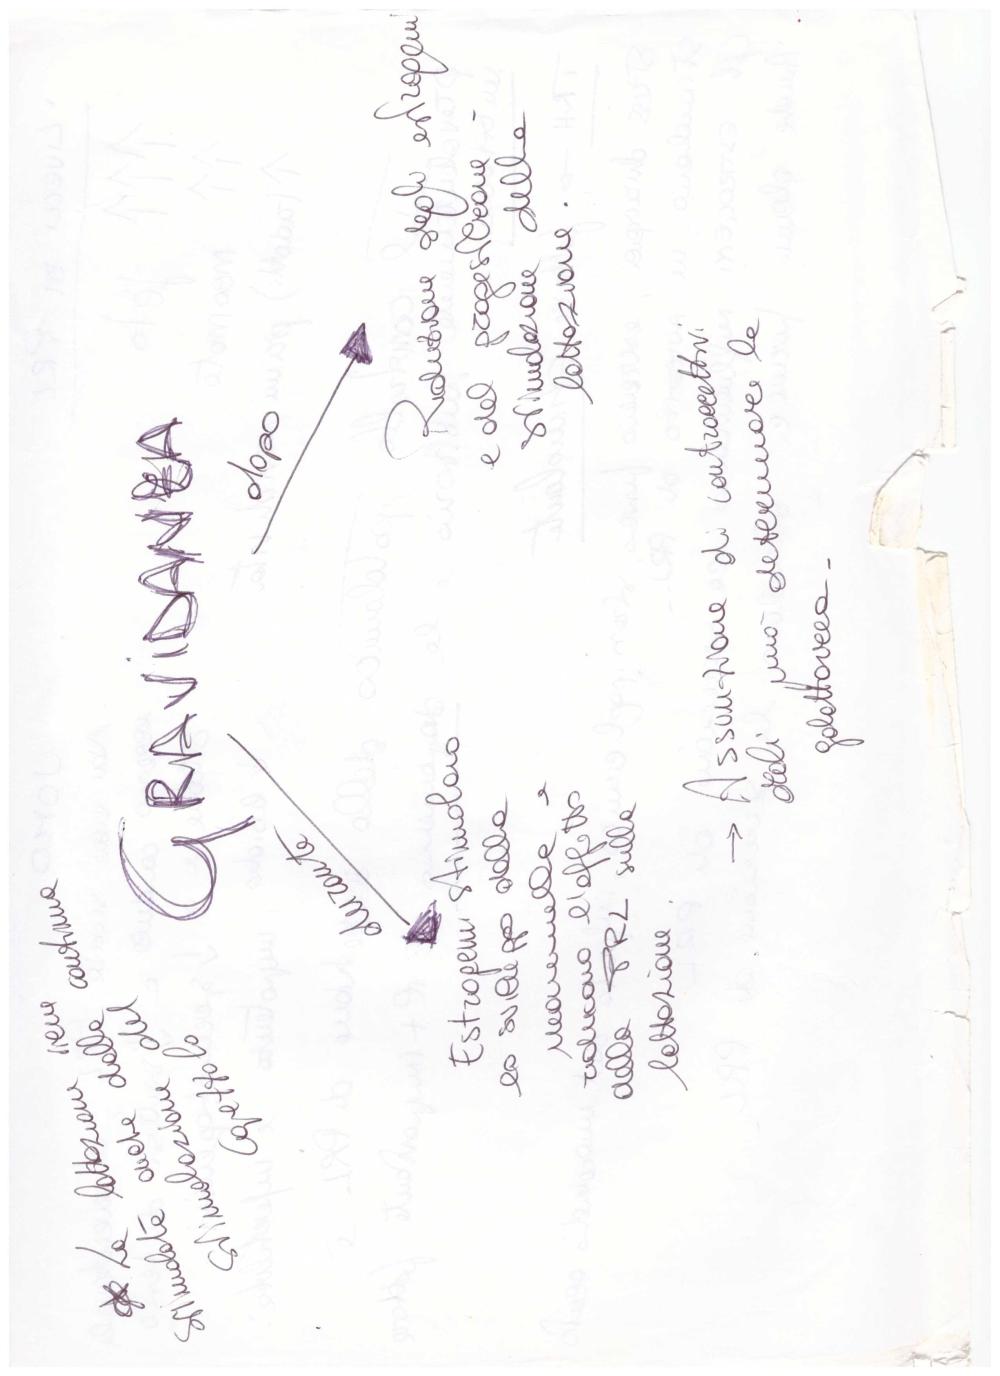 * La lattazione viene continua
stimolata anche dalla
stimolazione del
capezzolo
GRAVIDANZA
durante
dopo
Estrogeni stimolano
lo sviluppo della
mammella e
riducono l'effetto
della PRL sulla
lattazione.
Riduzione degli estrogeni
e del progesterone
stimolazione della
lattazione.
→ Assunzione di contraccettivi
orali può determinare la
galattorrea.